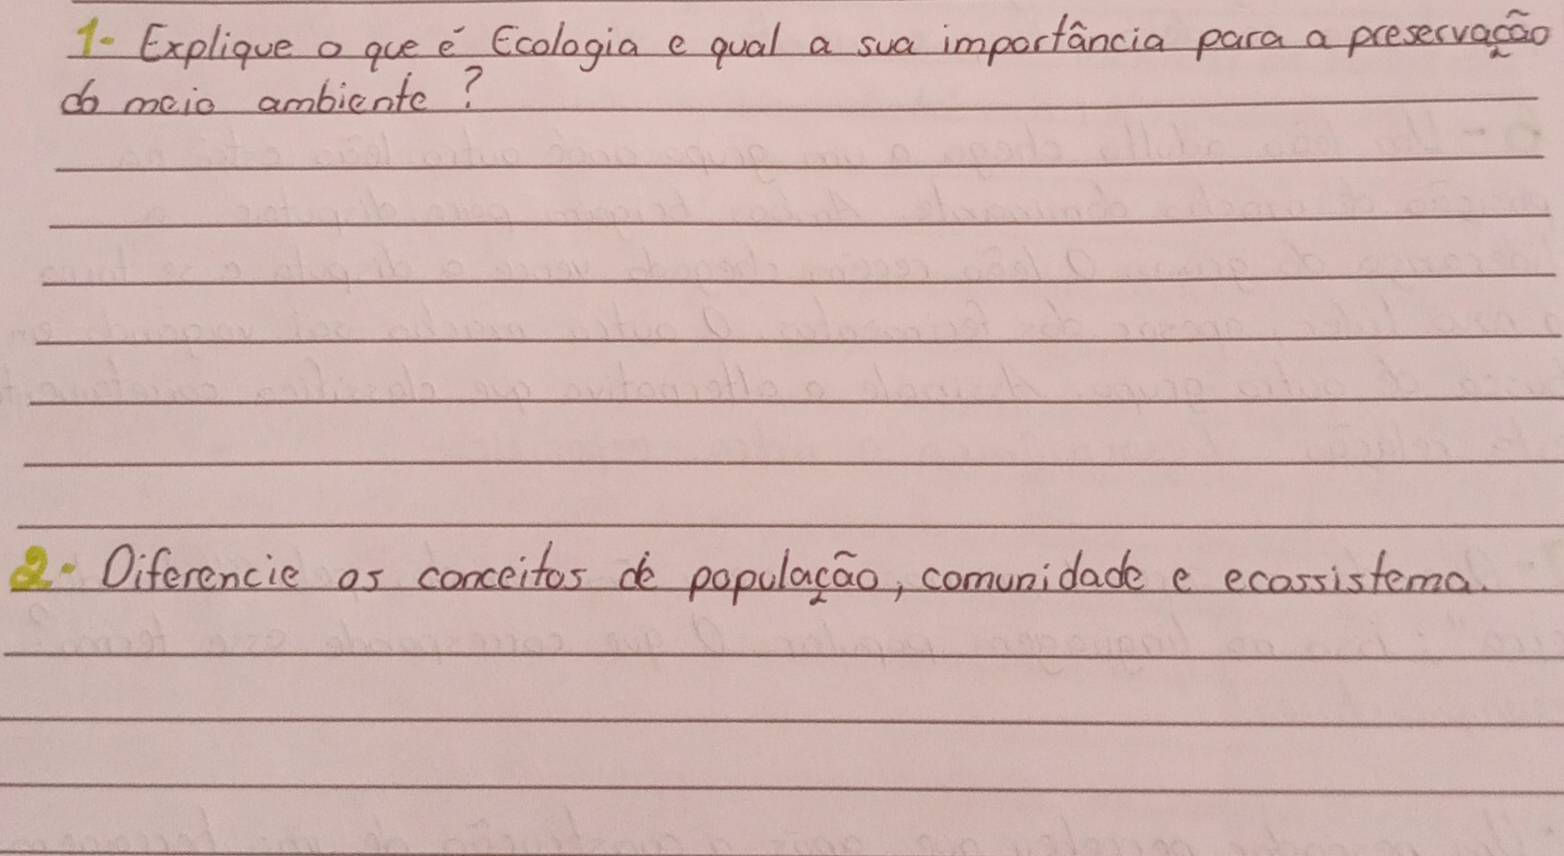 1- Explique o que é Ecologia e qual a sua importância para a preservação
do meio ambiente?
2- Diferencie os conceitos de população, comunidade e ecossistema.